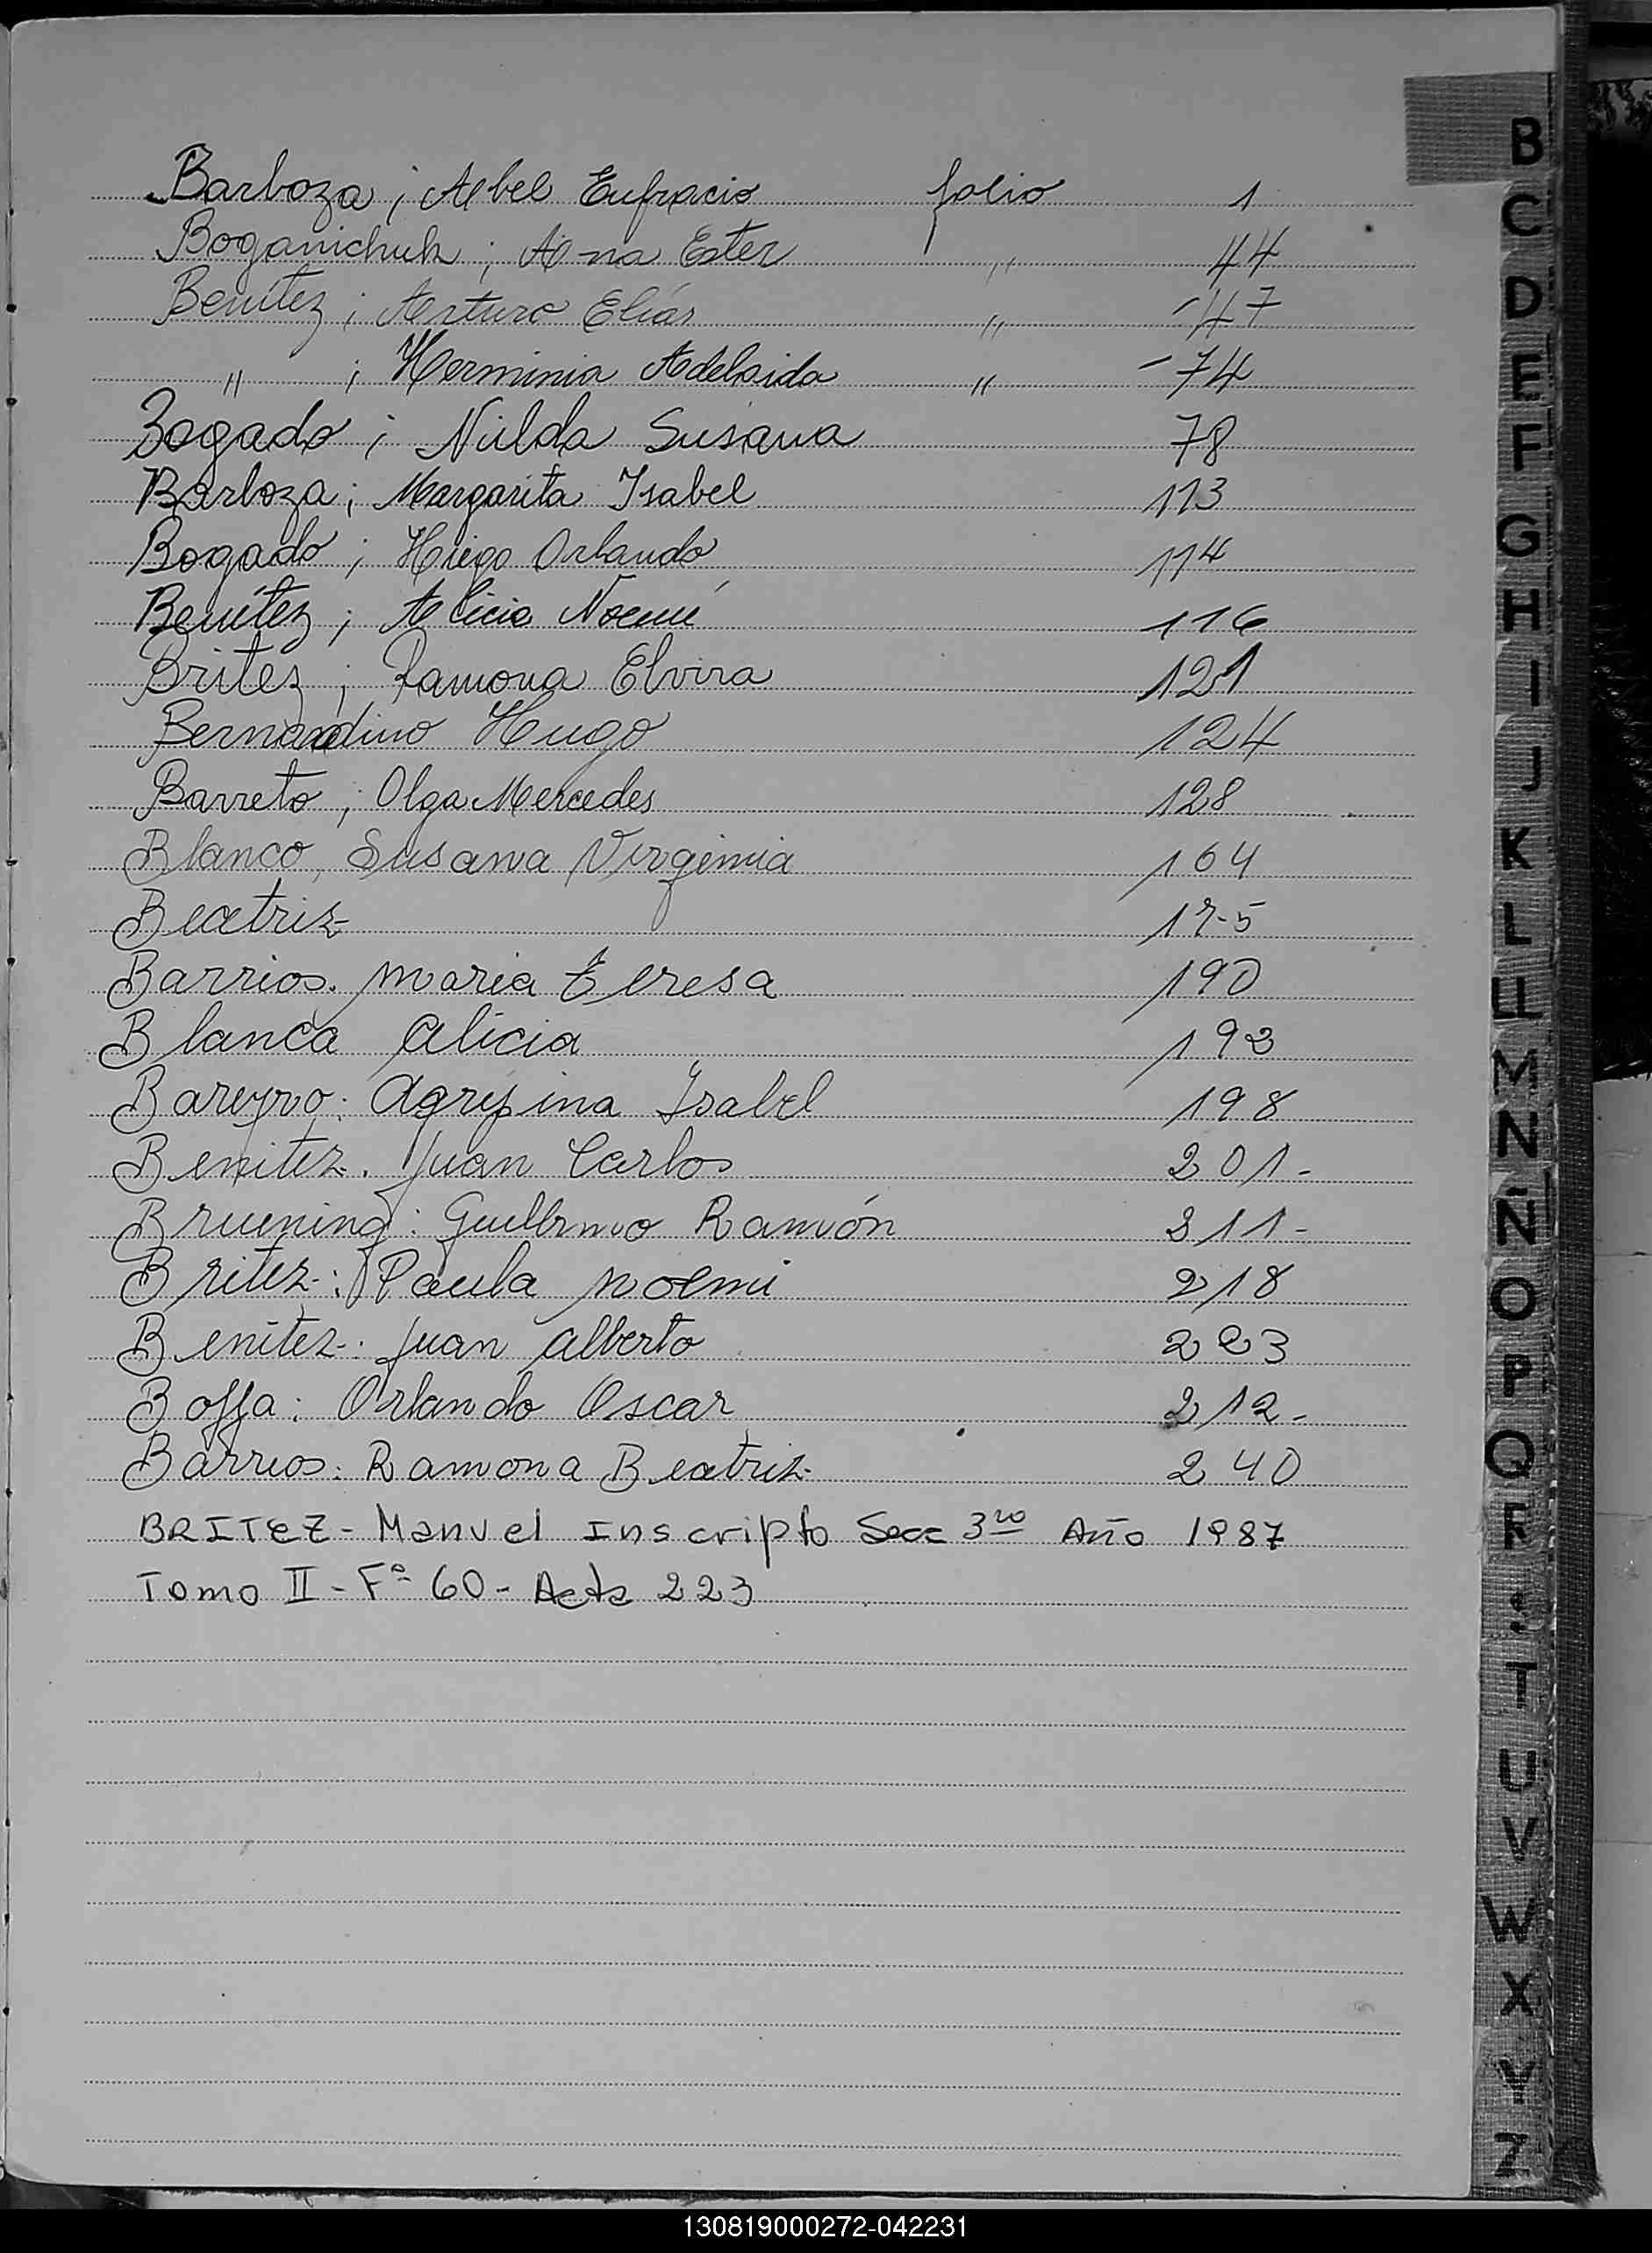 Barboza; Abel Eufracio folio 1
Boganichuk; Ana Ester " 44
Benítez; Arturo Elías " -47
" ; Herminia Adelaida " -74
Bogado; Nilda Susana 78
Barboza; Margarita Isabel 113
Bogado; Hugo Orlando 114
Benítez; Alicia Noemí 116
Britez; Ramona Elvira 121
Bernardino Hugo 124
Barreto; Olga Mercedes 128
Blanco, Susana Virginia 164
Beatriz 175
Barrios. Maria teresa 190
Blanca Alicia 193
Bareyro: Agripina Isabel 198
Benitez. Juan Carlos 201-
Bruening: Guillermo Ramón 211-
Britez: Paula Noemi 218
Benitez: Juan Alberto 223
Boffa: Orlando Oscar 212-
Barrios: Ramona Beatriz 240
BRITEZ - Manuel Inscripto Secc 3ra Año 1987
Tomo II - Fº 60 - Acta 223
B
C
D
E
F
G
H
I
J
K
L
LL
M
N
Ñ
O
P
Q
R
S
T
U
V
W
X
Y
Z
130819000272-042231